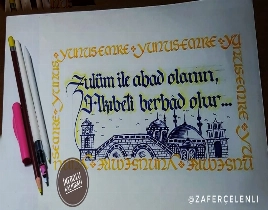 YUNUS-EMRE ✦ YUNUS-EMRE ✦ YUNUS-EMRE
Zulüm ile abad olanın,
Akıbeti berbad olur...
YUNUS-EMRE
YUNUS-EMRE
YUNUS-EMRE
@ZAFERCELENLI